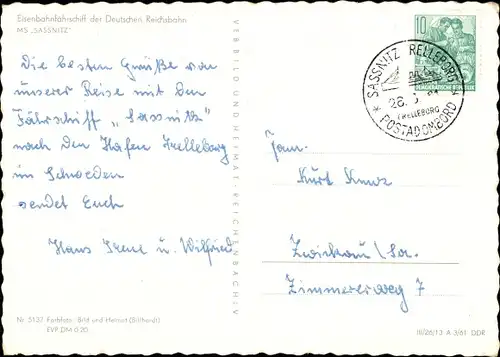 Eisenbahnfährschiff der Deutschen Reichsbahn
MS „SASSNITZ"
Die besten Grüße von
unserer Reise mit dem
Fährschiff „Sassnitz"
nach dem Hafen Trelleborg
in Schweden
sendet Euch
Hans Irene u. Wilfried
Nr 5137 Farbfoto: Bild und Heimat (Billhardt)
EVP DM 0.20
VERB BILD UND HEIMAT · REICHENBACH i. V.
10
DEUTSCHE DEMOKRATISCHE REPUBLIK
SASSNITZ TRELLEBORG
28.
TRELLEBORG
POSTADOMBORD
Fam.
Kurt Kunz
Zwickau/Sa.
Zimmererweg 7
III/26/13 A 3/61 DDR